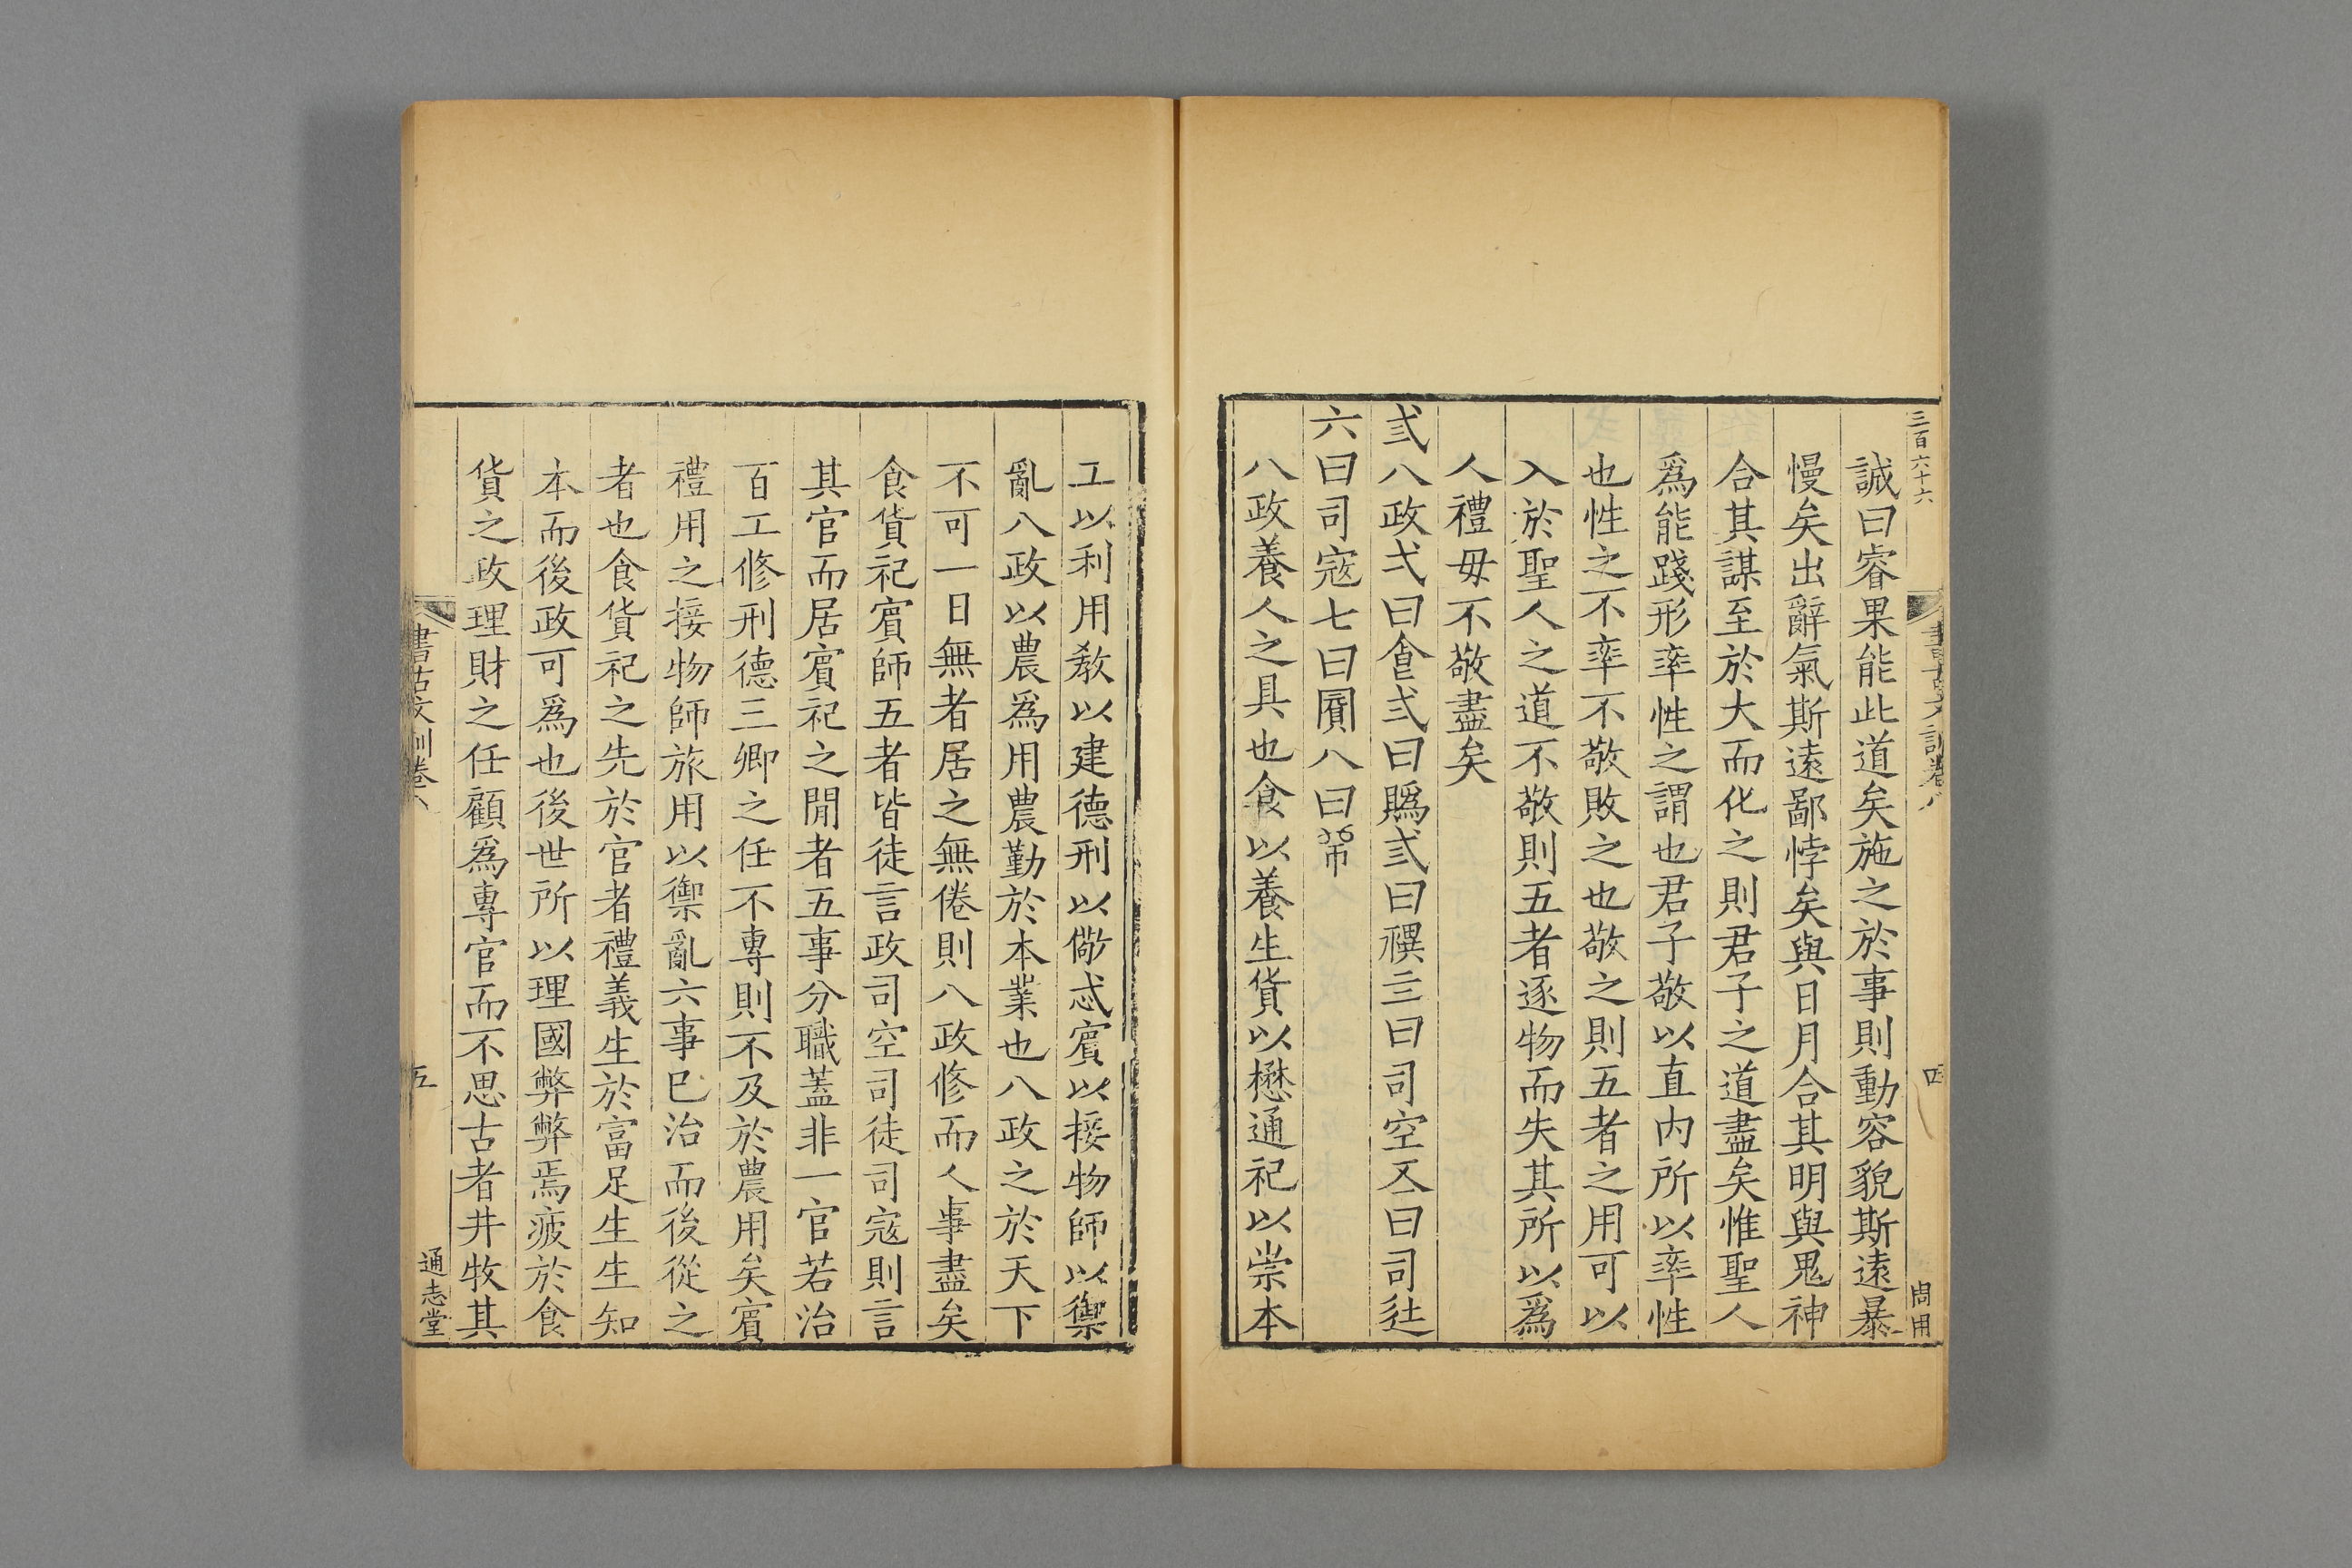 三百六十六
書古文訓卷八
四
誠曰睿果能此道矣施之於事則動容貌斯遠暴
慢矣出辭氣斯遠鄙悖矣與日月合其明與鬼神
合其謀至於大而化之則君子之道盡矣惟聖人
爲能踐形率性之謂也君子敬以直内所以率性
也性之不率不敬敗之也敬之則五者之用可以
入於聖人之道不敬則五者逐物而失其所以爲
人禮毋不敬盡矣
弎八政弌曰𩚁弍曰䞈弎曰禩亖曰司空𠄡曰司𨑒
六曰司寇七曰𡪛八曰𠦵
八政養人之具也食以養生貨以懋通祀以崇本
工以利用敎以建德刑以儆忒賓以接物師以禦
亂八政以農爲用農勤於本業也八政之於天下
不可一日無者居之無倦則八政修而人事盡矣
食貨祀賓師五者皆徒言政司空司徒司寇則言
其官而居賓祀之閒者五事分職蓋非一官若治
百工修刑德三卿之任不專則不及於農用矣賓
禮用之接物師旅用以禦亂六事已治而後從之
者也食貨祀之先於官者禮義生於富足生生知
本而後政可爲也後世所以理國弊弊焉疲於食
貨之政理財之任顧爲專官而不思古者井牧其
書古文訓卷八
五
通志堂